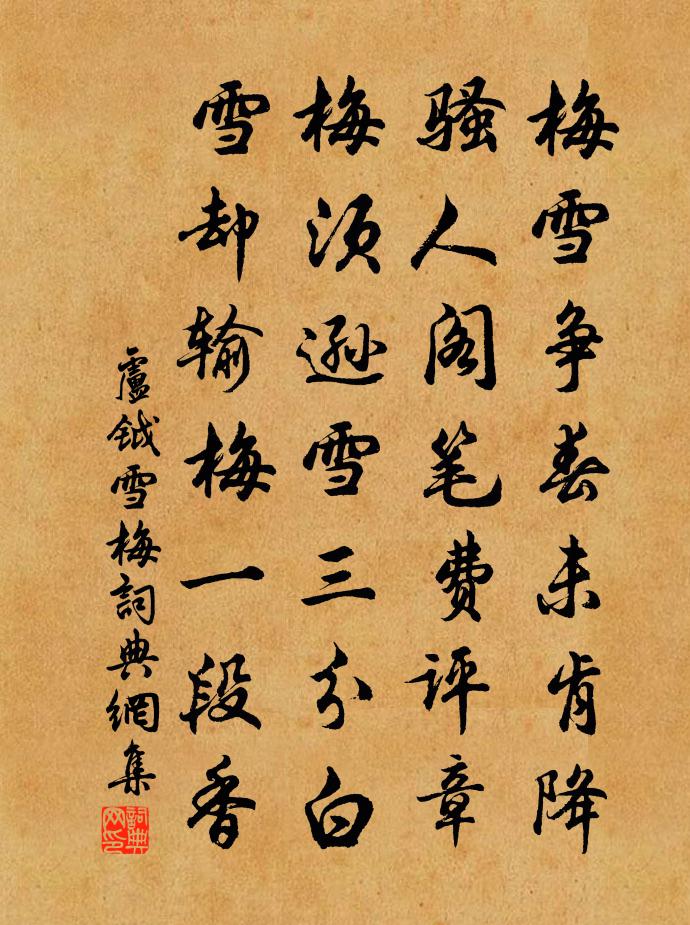 梅雪争春未肯降
骚人阁笔费评章
梅须逊雪三分白
雪却输梅一段香
盧钺雪梅詞典網集
詞典网印